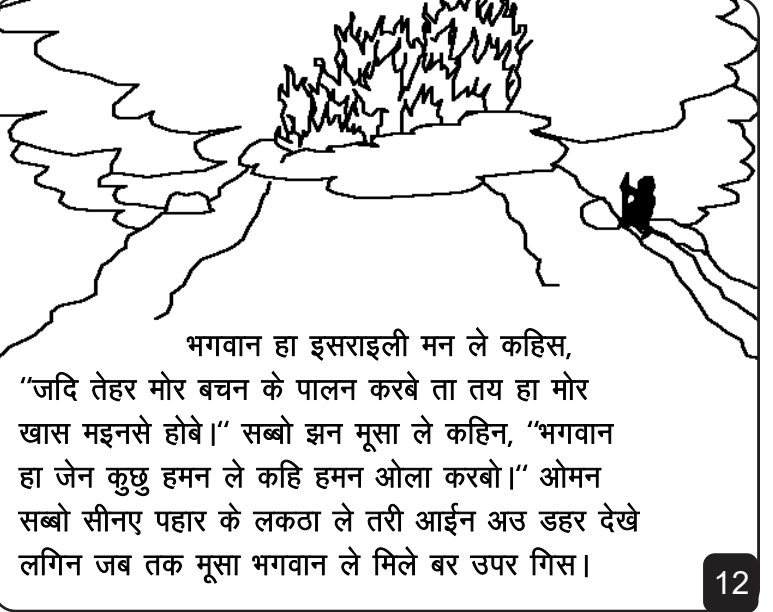 भगवान हा इसराइली मन ले कहिस,
“जदि तेहर मोर बचन के पालन करबे ता तय हा मोर
खास मइनसे होबे।“ सब्बो झन मूसा ले कहिन, “भगवान
हा जेन कुछु हमन ले कहि हमन ओला करबो।“ ओमन
सब्बो सीनए पहार के लकठा ले तरी आईन अउ डहर देखे
लगिन जब तक मूसा भगवान ले मिले बर उपर गिस।
12